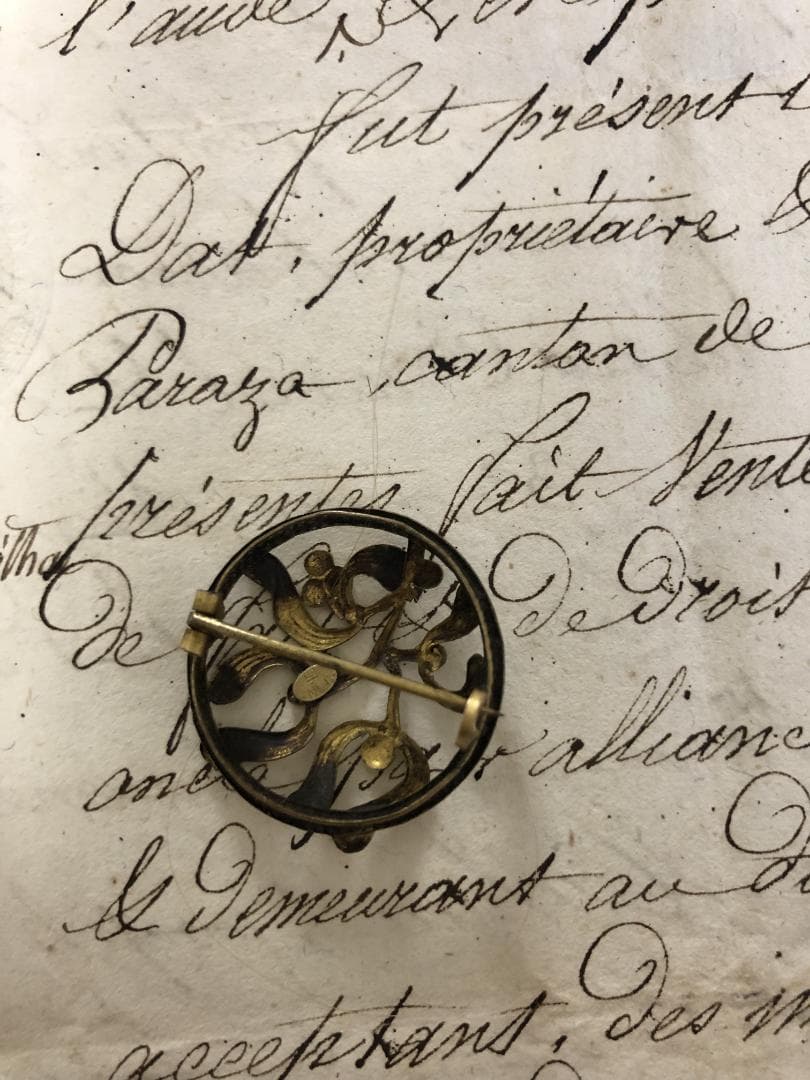 l'aude
fut présent
Dat, propriétaire &
Paraza, canton de
présentes fait Vente
de de Droit
oncle par allianc
& Demeurant au
acceptant, des